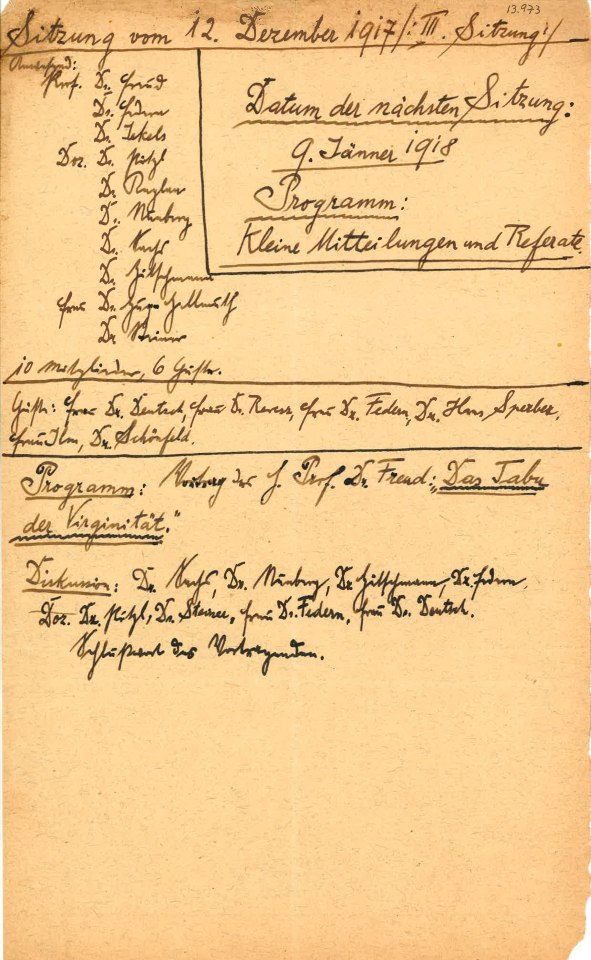 13.973
Sitzung vom 12. Dezember 1917 /: III. Sitzung :/
Anwesend:
Prof. Dr. Freud
Dr. Federn
Dr. Jekels
Doz. Dr. Pötzl
Dr.
Dr. Nunberg
Dr. Sachs
Dr. Hitschmann
Frau Dr. Hug-Hellmuth
Dr. Steiner
Datum der nächsten Sitzung:
9. Jänner 1918
Programm:
Kleine Mitteilungen und Referate.
10 Mitglieder, 6 Gäste.
Gäste: Frau Dr. Deutsch, Frau Dr. Revesz, Frau Dr. Federn, Dr. Hans Sperber,
Frau Ilm, Dr. Schönfeld.
Programm: Vortrag des H. Prof. Dr. Freud: „Das Tabu
der Virginität."
Diskussion: Dr. Sachs, Dr. Nunberg, Dr. Hitschmann, Dr. Federn,
Doz. Dr. Pötzl, Dr. Steiner, Frau Dr. Federn, Frau Dr. Deutsch.
Schlußwort des Vortragenden.